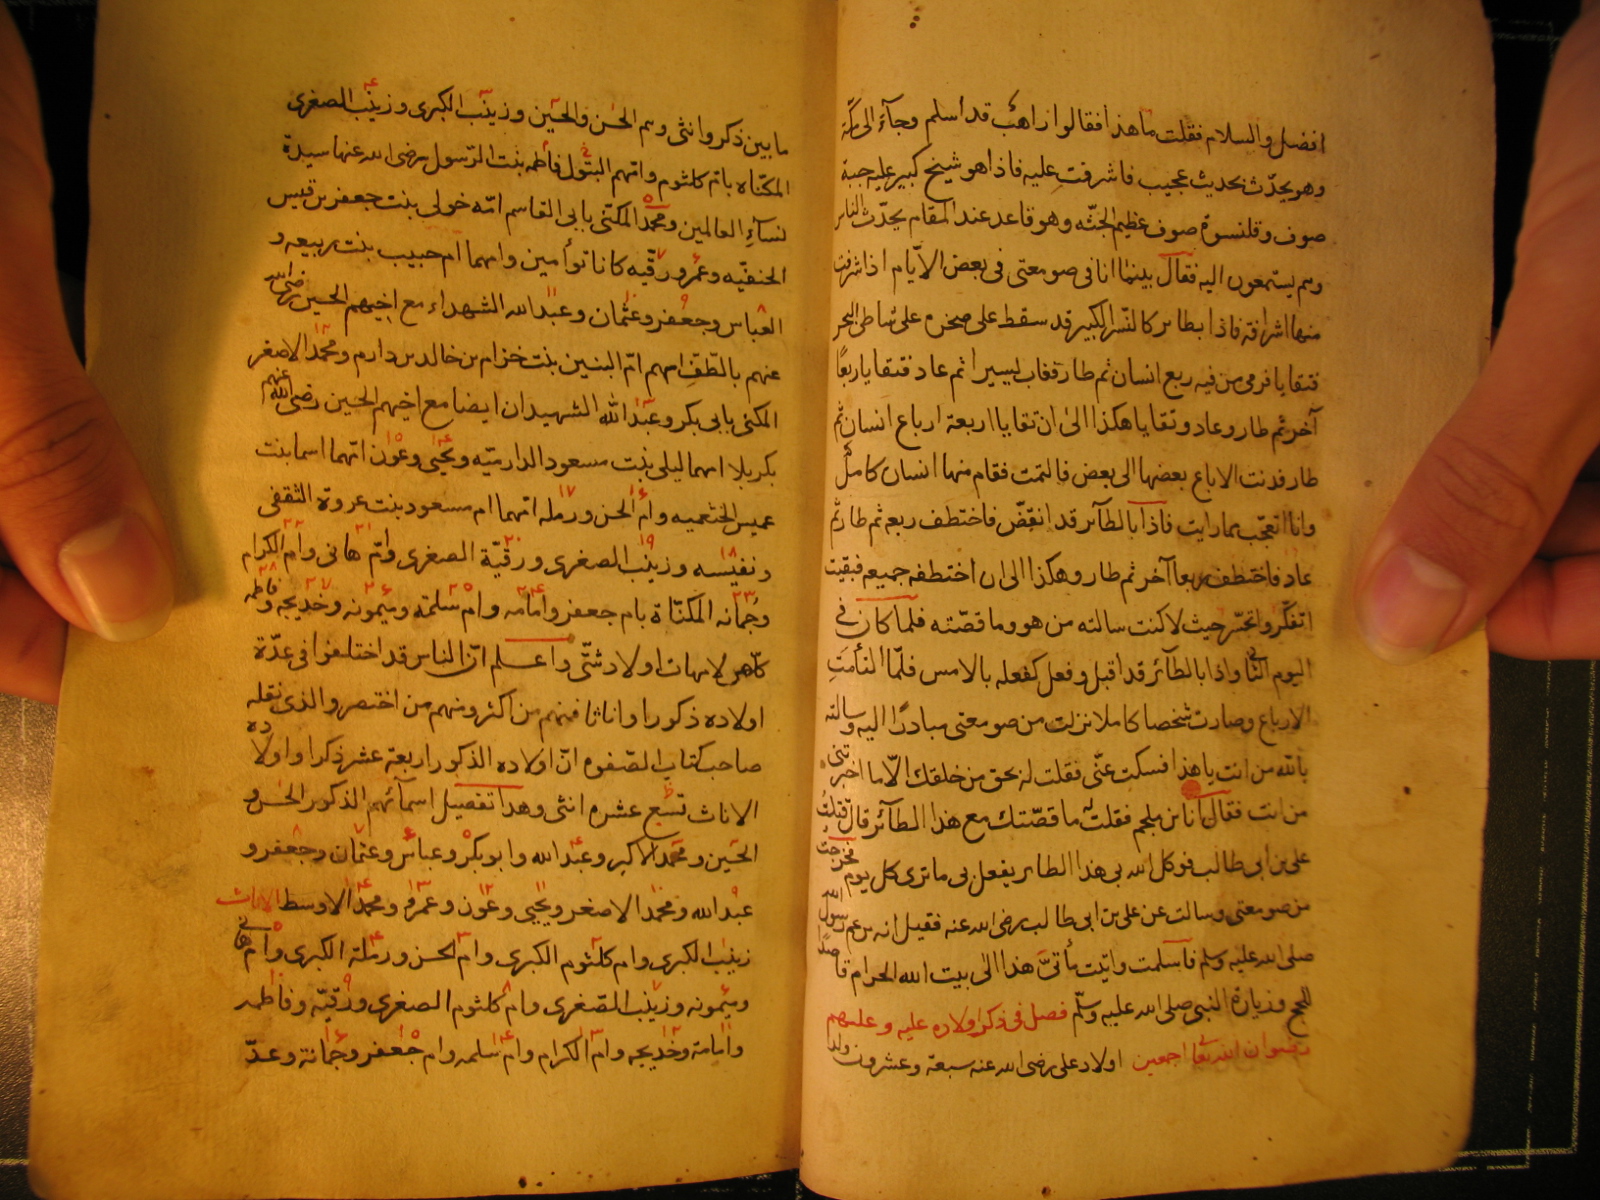 افضل والسلام فقلت ما هذا فقالوا راهب قد أسلم وجآء الى مكّة
وهو يحدّث بحديث عجيب فاشرفت عليه فاذا هو شيخ كبير عليه جبة
صوف وقلنسوة صوف عظيم الجثّه وهو قاعد عند المقام يحدّث الناس
وهم يستمعون اليه فقال بينما انا فى صومعتى فى بعض الأيّام اذ اشرفت
منها اشرافة فاذا بطائر كالنّسر الكبير قد سقط على صخره على شاطى البحر
فتقايا فرمى من فيه ربع انسان ثم طار فغاب يسيرا ثم عاد فتقايا ربعًا
آخر ثم طار وعاد وتقايا هكذا الى ان تقايا اربعة ارباع انسان ثم
طار فدنت الارباع بعضها الى بعض فالتمت فقام منها انسان كاملٌ
وانا اتعجّب مما رايت فاذا بالطآئر قد انقضّ فاختطف ربعه ثم طار ثم
عاد فاختطف ربعا آخر ثم طار وهكذا الى ان اختطفه جميعه فبقيت
اتفكّر واتحسّر حيث لا كنت سالته من هو وما قصّته فلما كان فى
اليوم الثانى واذا بالطآئر قد اقبل وفعل كفعله بالامس فلمّا التأمت
الارباع وصارت شخصا كاملا نزلت من صومعتى مبادرًا اليه وسالته
بالله من انت يا هذا فسكت عنّى فقلت له بحق من خلقك الّا ما اخبرتنى
من انت فقال أنا بن ملجم فقلت له ما قصّتك مع هذا الطآئر قال قتلتُ
على بن ابى طالب فوكل الله بى هذا الطائر يفعل بى ما ترى كل يوم فخرجتُ
من صومعتى وسالت عن على بن ابى طالب رضى الله عنه فقيل انه بن عم رسول الله
صلى الله عليه وسلم فاسلمت واتيت مأتىّ هذا الى بيت الله الحرام قاصدًا
للحج وزيارة النبى صلى الله عليه وسلّم فصل فى ذكر اولاده عليه وعليهم
رضوان الله تعالى اجمعين اولاد على رضى الله عنه سبعة وعشرون ولدا
ما بين ذكر وانثى وهم الحسن والحسين وزينب الكبرى وزينب الصغرى
المكنّاه بام كلثوم وامّهم البتول فاطمه بنت الرّسول رضى الله عنها سيدة
نسآء العالمين ومحمّد المكنّى بابى القاسم امّه خولى بنت جعفر بن قيس
الحنفيّه وعمر ورقّيه كانا توأمين وامهما ام حبيب بنت ربيعه و
العباس وجعفر وعثمان وعبد الله الشهداء مع اخيهم الحسين رضى الله
عنهم بالطّف امهم امّ البنين بنت خزام بن خالد بن دارم ومحمد الاصغر
المكنى بابى بكر وعبد الله الشهيدان ايضا مع اخيهم الحسين رضى الله عنهم
بكربلا امهما ليلى بنت مسعود الدارميّه ويحيى وعون امّهما اسما بنت
عميس الخثعميه وام الحسن ورمله امّهما ام مسعود بنت عروة الثقفى
ونفيسه وزينب الصغرى ورقيّة الصغرى وامّ هانى وام الكرام
وجُمانه المكنّاة بام جعفر وامامه وام سلمة وميمونه وخديجه وفاطمه
كلّهم لامهات اولاد شتّى واعـلم انّ الناس قد اختلفوا فى عدّة
اولاده ذكورا واناثا فمنهم من اكثر ومنهم من اختصر والذى نقله
صاحب كتاب الصّفوه انّ اولاده الذكور اربعة عشر ذكرا واولاده
الاناث تسع عشره انثى وهذا تفصيل اسمآئهم الذكور الحسن و
الحسين ومحمد الاكبر وعبد الله وابو بكر وعباس وعثمان وجعفر و
عبد الله ومحمد الاصغر ويحيى وعون وعمر ومحمد الاوسط الاناث
زينب الكبرى وام كلثوم الكبرى وام الحسن ورملة الكبرى وام هانى
وميمونه وزينب الصّغرى وام كلثوم الصغرى ورقيّه وفاطمه
وامامة وخديجه وام الكرام وام سلمه وام جعفر وجمانة وعدّ